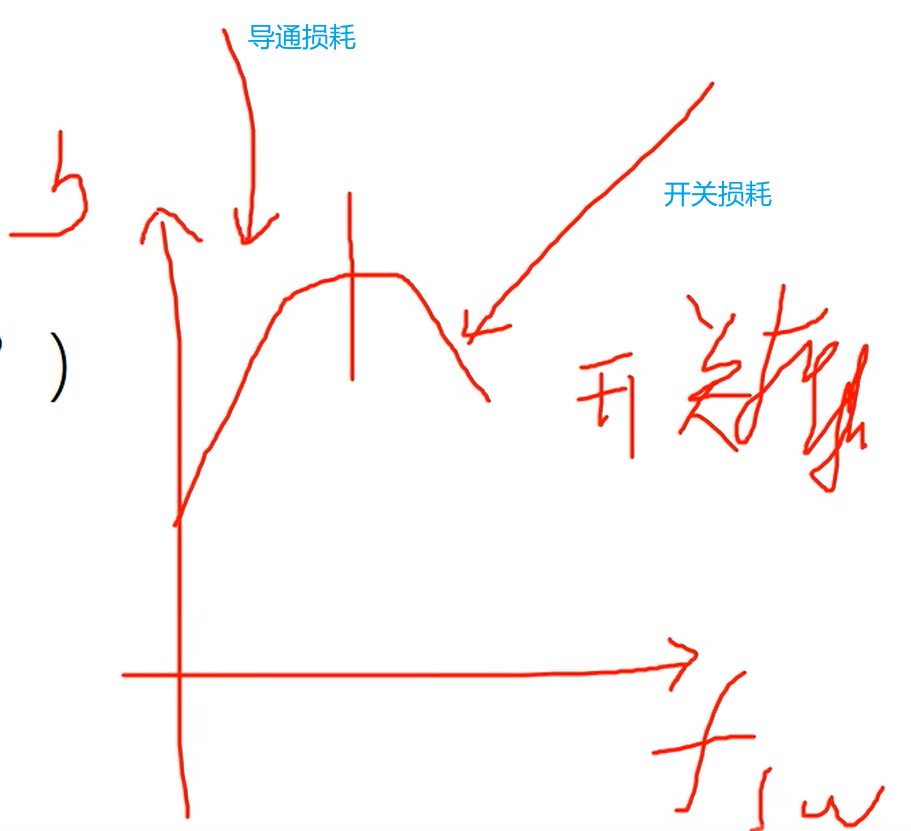 导通损耗
开关损耗
)
开关损耗
f sw